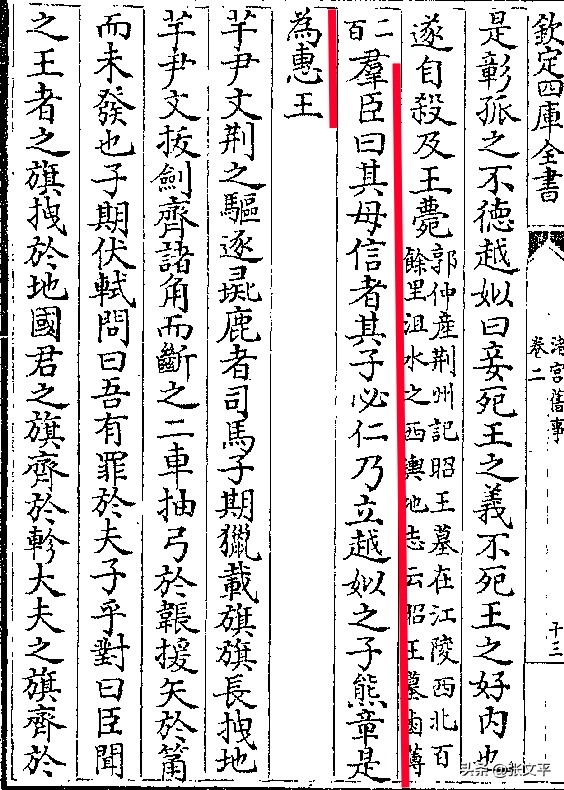 欽定四庫全書
渚宮舊事
卷二
十三
是彰孤之不德越姒曰妾死王之義不死王之好内也
遂自殺及王薨
郭仲産荆州記昭王墓在江陵西北百
餘里沮水之西輿地志云昭王墓鹵簿
二
百
羣臣曰其母信者其子必仁乃立越姒之子熊章是
為惠王
芊尹文荆之驅逐彘鹿者司馬子期獵載旗旗長拽地
芊尹文拔劍齊諸角而斷之二車抽弓於韔援矢於筩
而未發也子期伏軾問曰吾有罪於夫子乎對曰臣聞
之王者之旗拽於地國君之旗齊於軫大夫之旗齊於
头条 @张文平